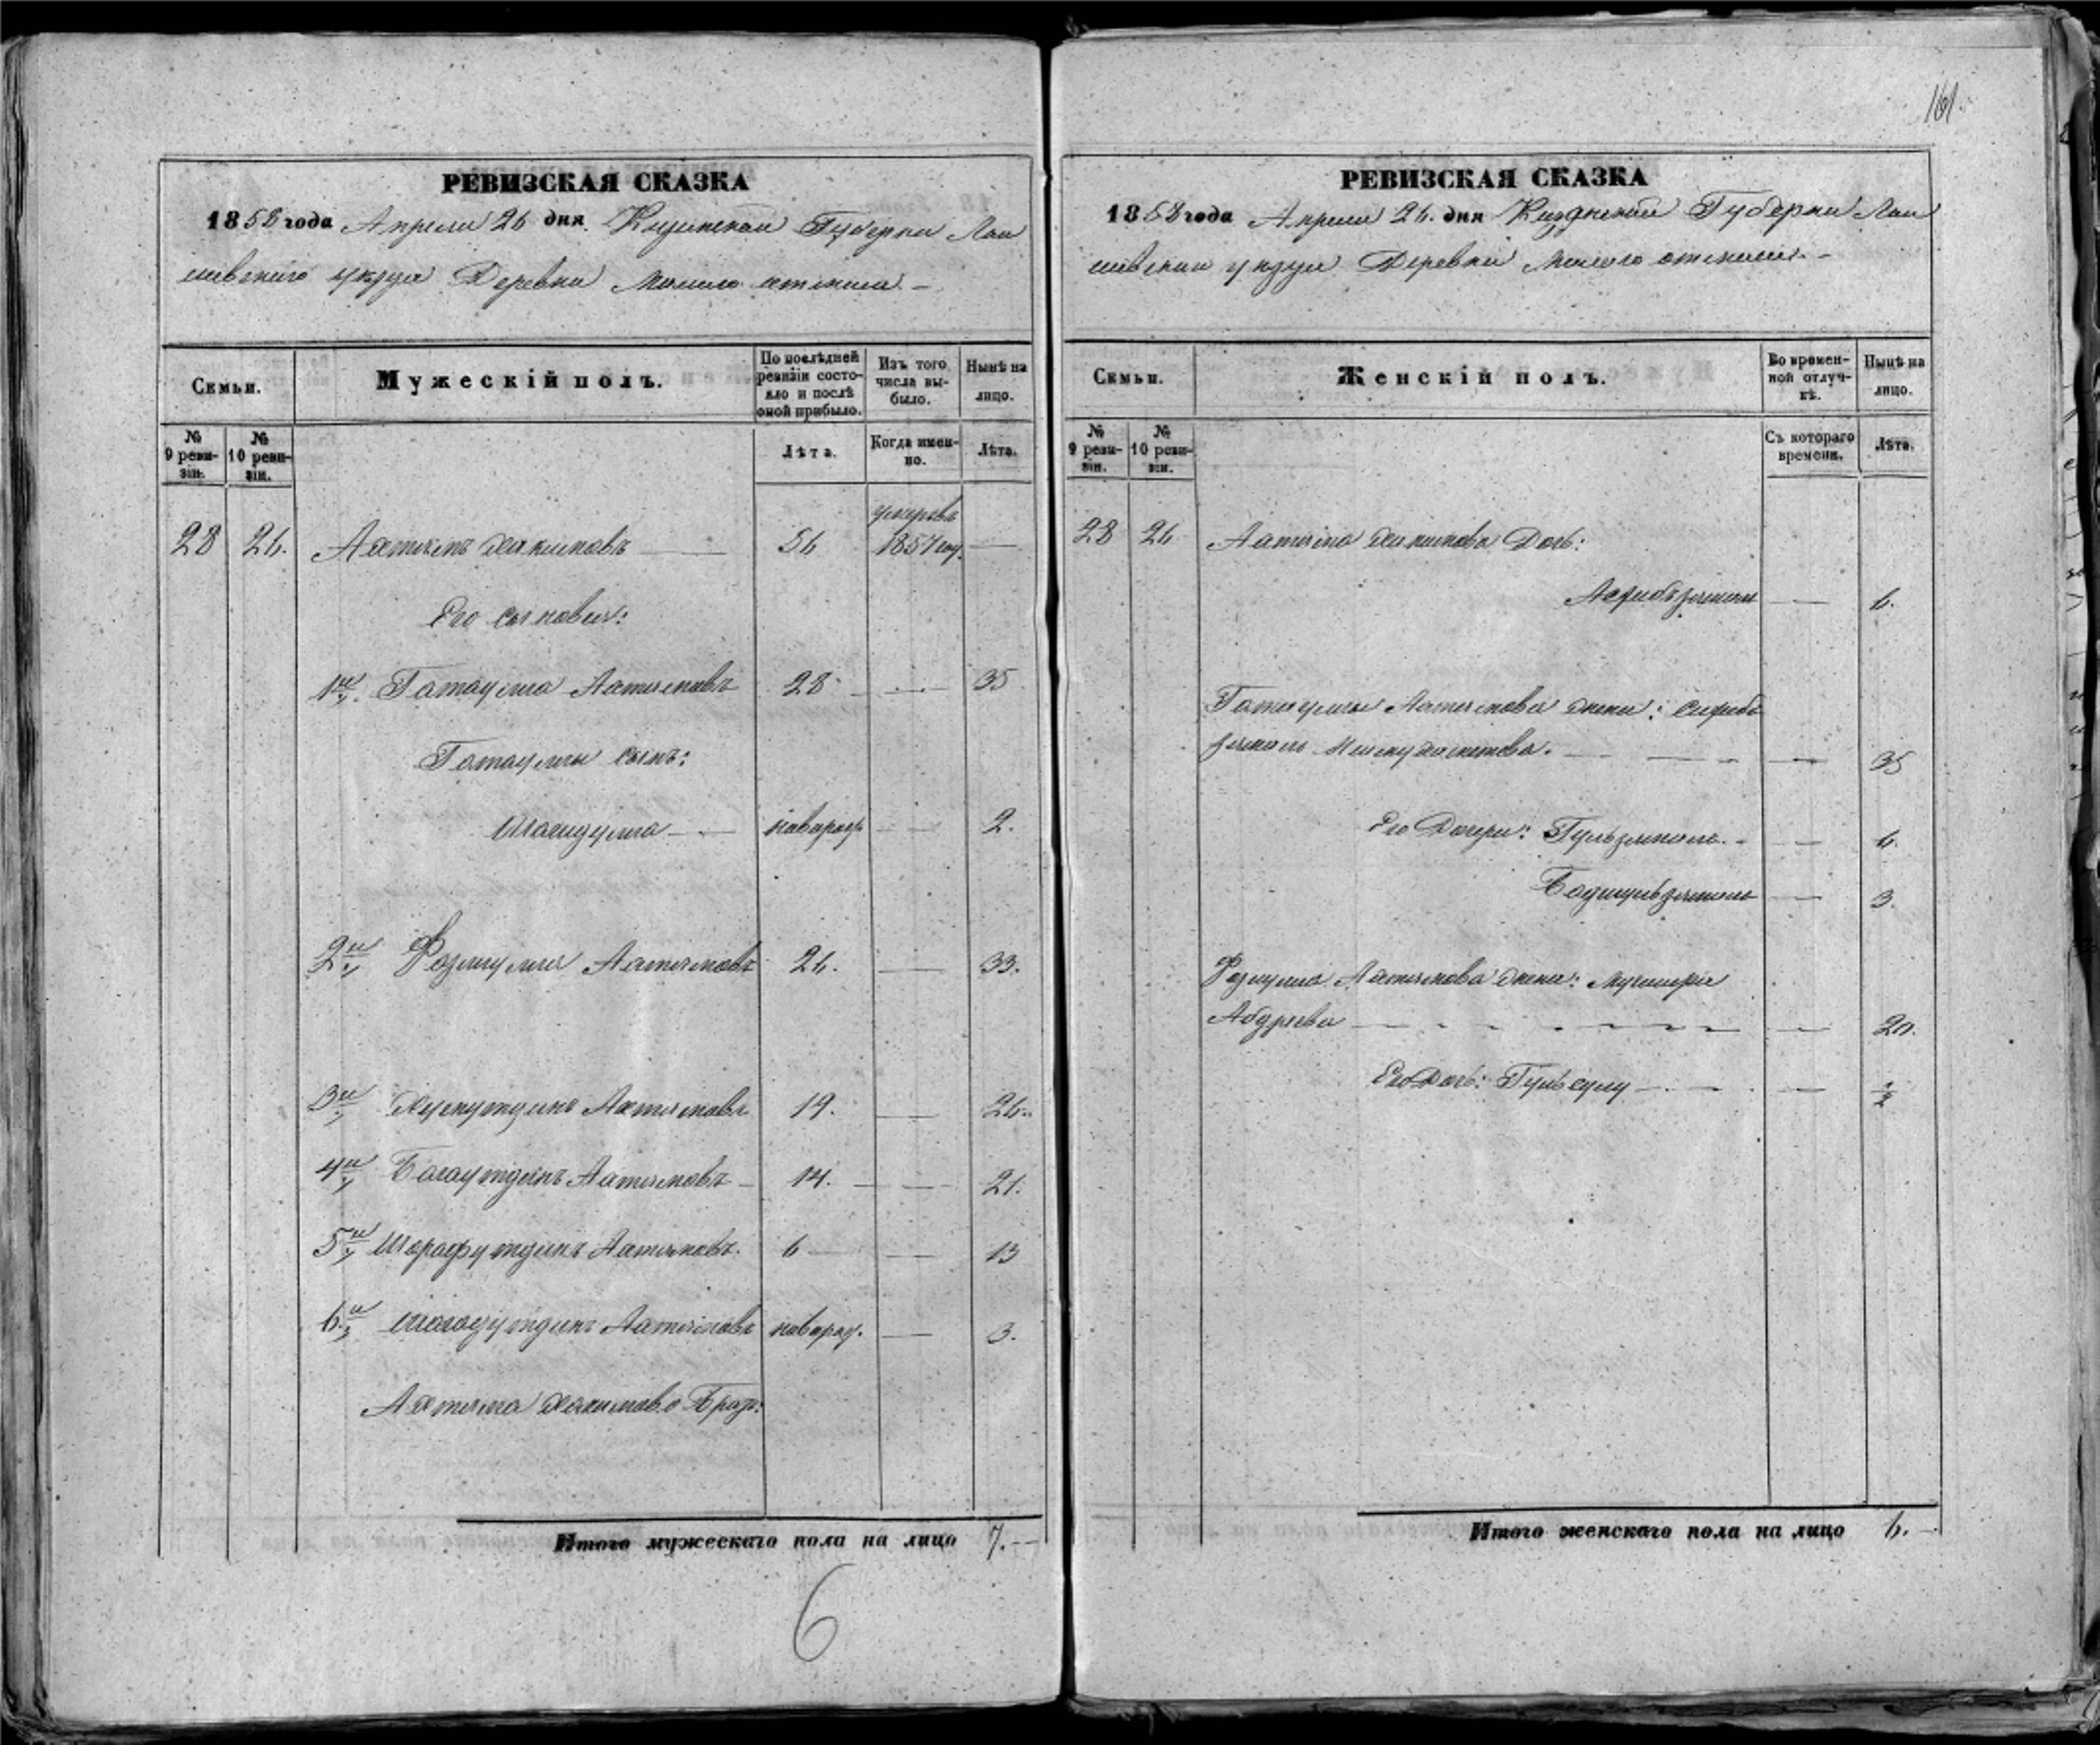 РЕВИЗСКАЯ СКАЗКА
1858 года Апреля 26 дня. Казанской Губернии Лаи
шевского уезда Деревни Малого атемаса. –
Семьи.
Мужескій полъ.
По послѣдней ревизіи состояло и послѣ оной прибыло.
Изъ того числа выбыло.
Нынѣ на лицо.
№ 9 ревизіи.
№ 10 ревизіи.
Лѣта.
Когда именно.
Лѣта.
28 26. Ахтямъ Хакимовъ — 56 умеръ въ 1857 году. —
Его сыновья:
1й Гатаулла Ахтямовъ 28 — 35
Гатауллы сынъ:
Шагидулла — новорож — 2.
2й Фазлулла Ахтямовъ 26. — 33.
3й Хуснутдинъ Ахтямовъ 19. — 26.
4й Багаутдинъ Ахтямовъ — 14. — 21.
5й Шарафутдинъ Ахтямовъ. 6 — — 13
6й Ахтямовъ новорож. — 3.
Ахтяма Хакимова Братъ:
Итого мужескаго пола на лицо 7. —
6
161.
РЕВИЗСКАЯ СКАЗКА
1858 года Апреля 26. дня Казанской Губернии Лаи
шевскаго уезда Деревни Малого –
Семьи.
Женскій полъ.
Во временной отлучкѣ.
Нынѣ на лицо.
№ 9 ревизіи.
№ 10 ревизіи.
Съ котораго времени.
Лѣта.
28 26 Ахтяма Хакимова Дочь:
— 6.
Гатауллы Ахтямова жена: Сарби
— 35
Его Дочери: Гульзямаль. – — 6.
Бадигульзямаль — 3.
Фазлулла Ахтямова жена:
— 20.
Его Дочь: — 1/2
Итого женскаго пола на лицо 6. –